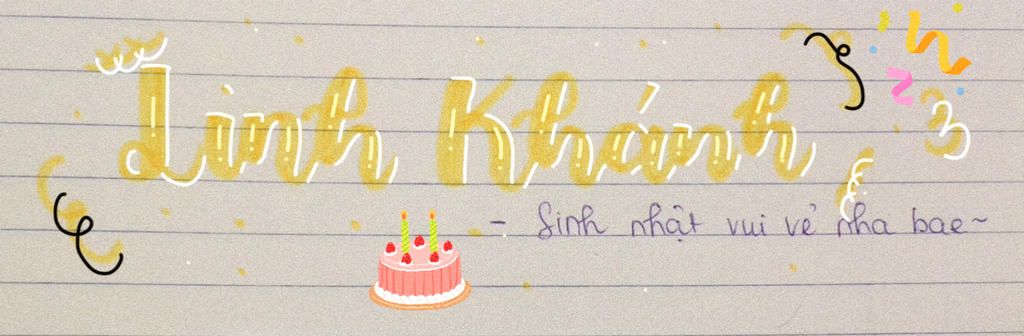 Linh Khánh
- Sinh nhật vui vẻ nha bae~